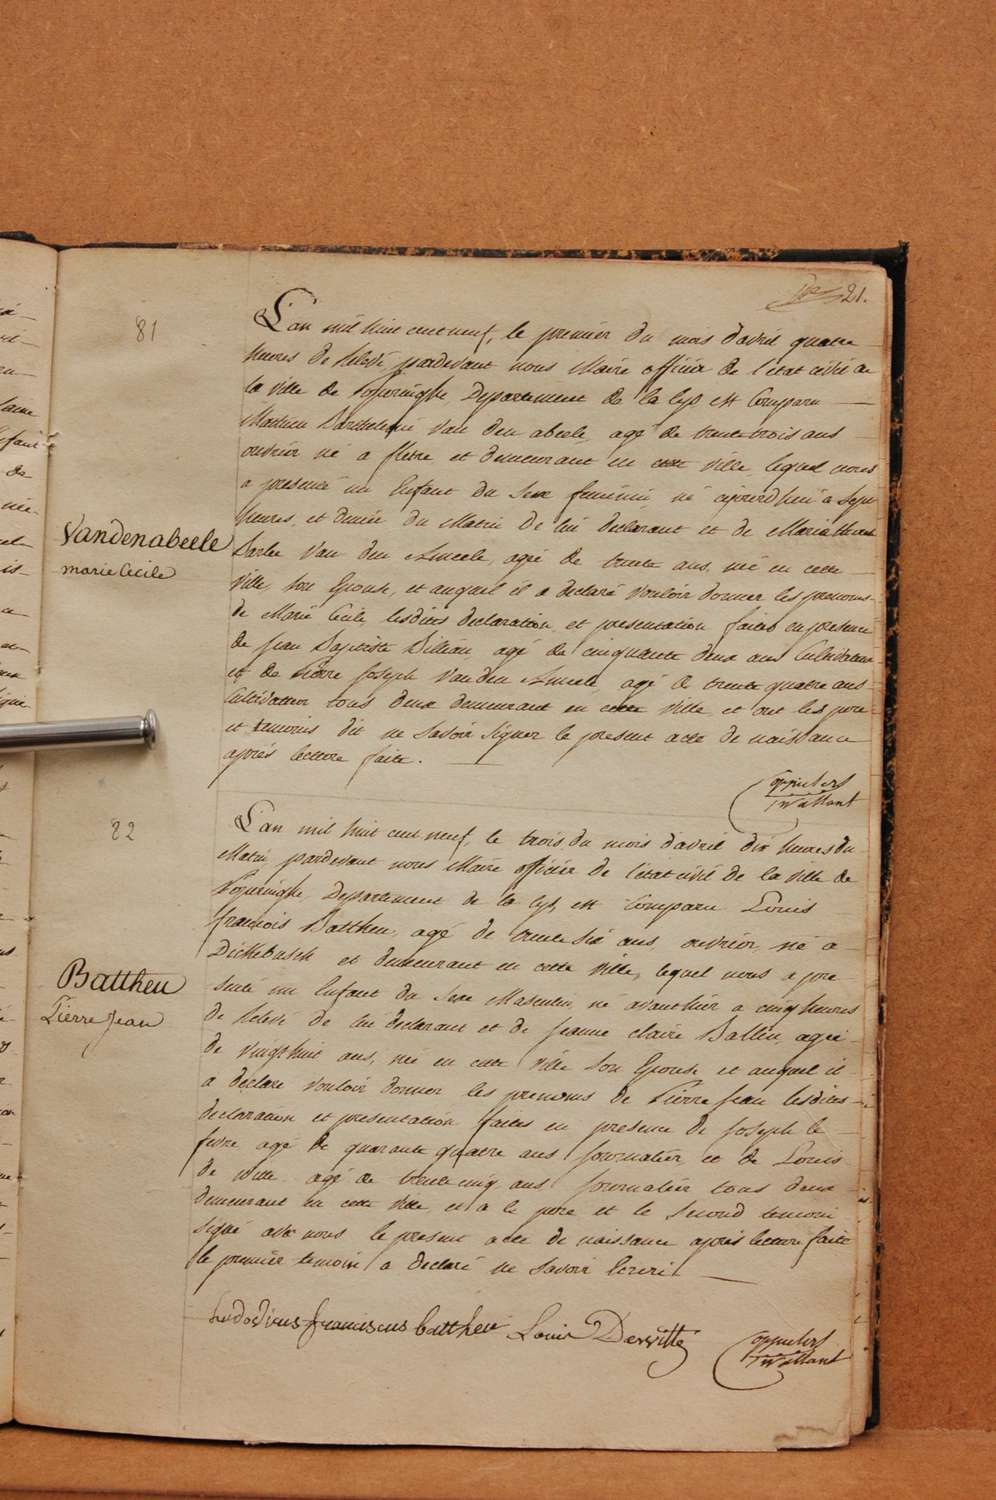 21.
81
L'an mil huit cent neuf, le premier du mois d'avril quatre
heures de Relevé pardevant nous Maire officier de l'état civil de
la ville de Poperinghe Departement de la Lys est Comparu
Mathieu Barthelemi Van den abeele, agé de trente trois ans
ouvrier né a fletre et demeurant en cette ville, lequel nous
a presenté un Enfant du Sexe feminin né aujourd'hui a Sept
heures, et demie du Matin de lui déclarant et de Marie therese
Vandenabeele
marie Cecile
Van den Ameele, agée de trente ans, née en cette
ville, son Epouse, et auquel il a declaré vouloir donner les prenoms
de Marie Cecile, lesdites declaration et presentation faites en presence
de Jean Baptiste Billiau, agé de cinquante deux ans Cultivateur
et de Pierre Joseph Vanden Ameele agé de trente quatre ans
Cultivateur tous deux demeurant en cette ville et ont les pere
et temoins dit ne Savoir Signer le present acte de naissance
après lecture faite.
82
L'an mil huit cent neuf, le trois du mois d'avril dix heures du
Matin pardevant nous Maire officier de l'état civil de la ville de
Poperinghe, Departement de la Lys, est Comparu Louis
françois Battheu, agé de trente six ans ouvrier né a
Dickebusch et demeurant en cette ville, lequel nous a pre
Battheu
Pierre Jean
senté un Enfant du Sexe Masculin, né avanthier a cinq heures
de Relevé de lui declarant et de Jeanne Claire Ballieu, agée
de vingt huit ans, née en cette ville Son Epouse et auquel il
a declaré vouloir donner les prenoms de Pierre Jean lesdites
declaration et presentation faites en presence de Joseph le
fevre agé de quarante quatre ans journalier et de Louis
de witte agé de trente cinq ans journalier tous deux
demeurant en cette ville, et a le pere et le Second temoin
signé avec nous le present acte de naissance après lecture faite
le premier temoin a declaré ne Savoir Ecrire
Ludovicus franciscus battheu Louis Dewitte